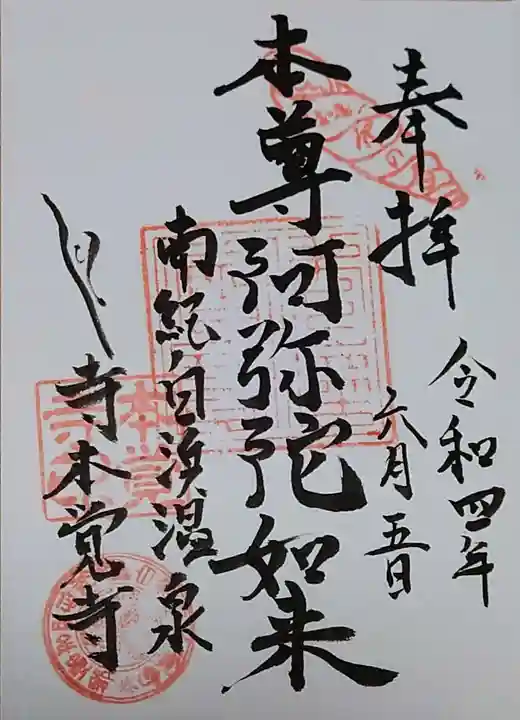 奉拝
令和四年
六月五日
本尊阿弥陀如来
南紀白浜温泉
寺本覚寺
本覚寺